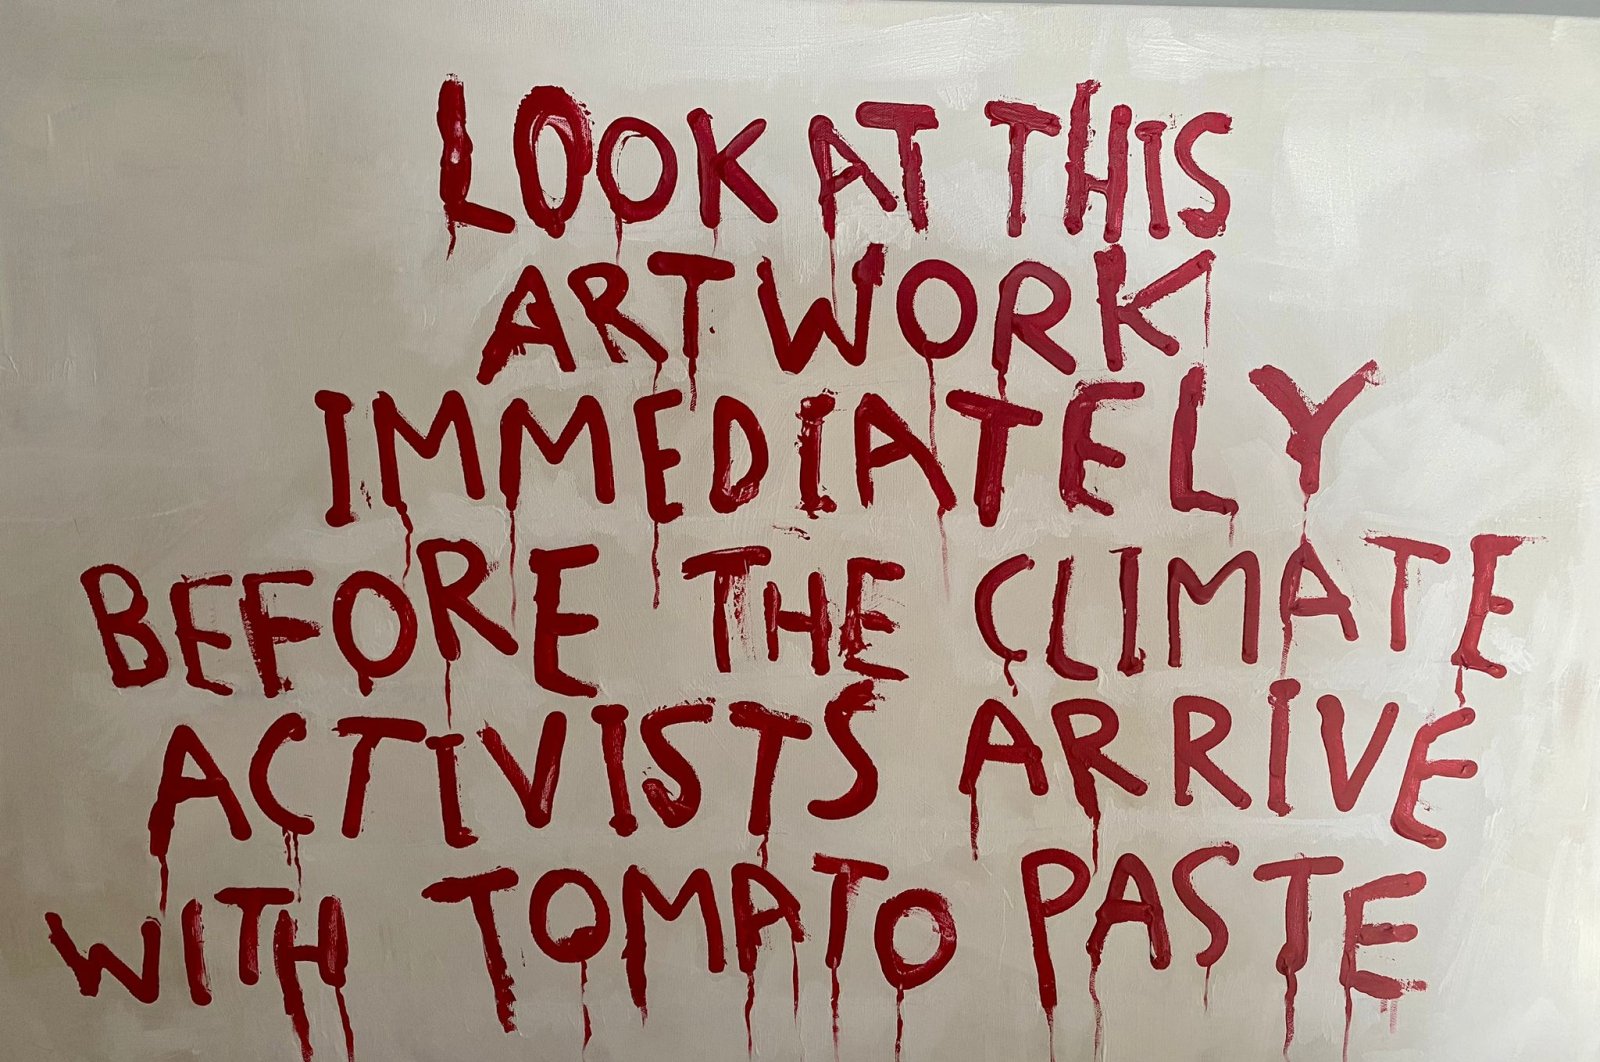 LOOK AT THIS
ARTWORK
IMMEDIATELY
BEFORE THE CLIMATE
ACTIVISTS ARRIVE
WITH TOMATO PASTE